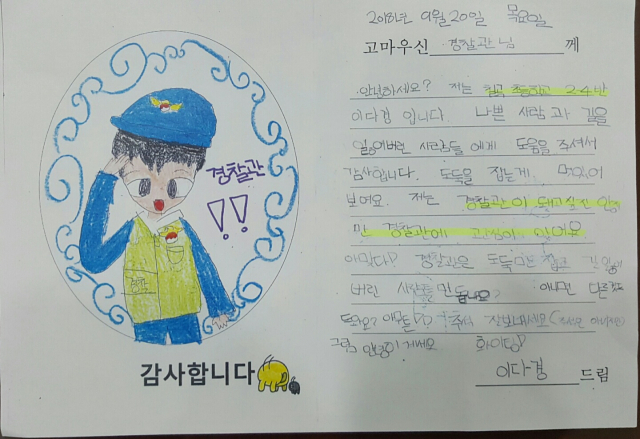 경찰관
!!
경찰
감사합니다
2018년 9월 20일 목요일
고마우신 경찰관님 께
안녕하세요? 저는 칠곡 초등학교 2-4반
이다경 입니다. 나쁜 사람과 길을
잃어버린 사람들 에게 도움을 주셔서
감사합니다. 도둑을 잡는게 멋있어
보여요. 저는 경찰관이 되고 싶진
만 경찰관에 관심이 있어요
경찰관은 도둑
버린 사람들만 돕나요? 아니면 다른것도
도와요? 추석 잘보내세요
그럼 안녕히 계세요 화이팅!
이다경 드림